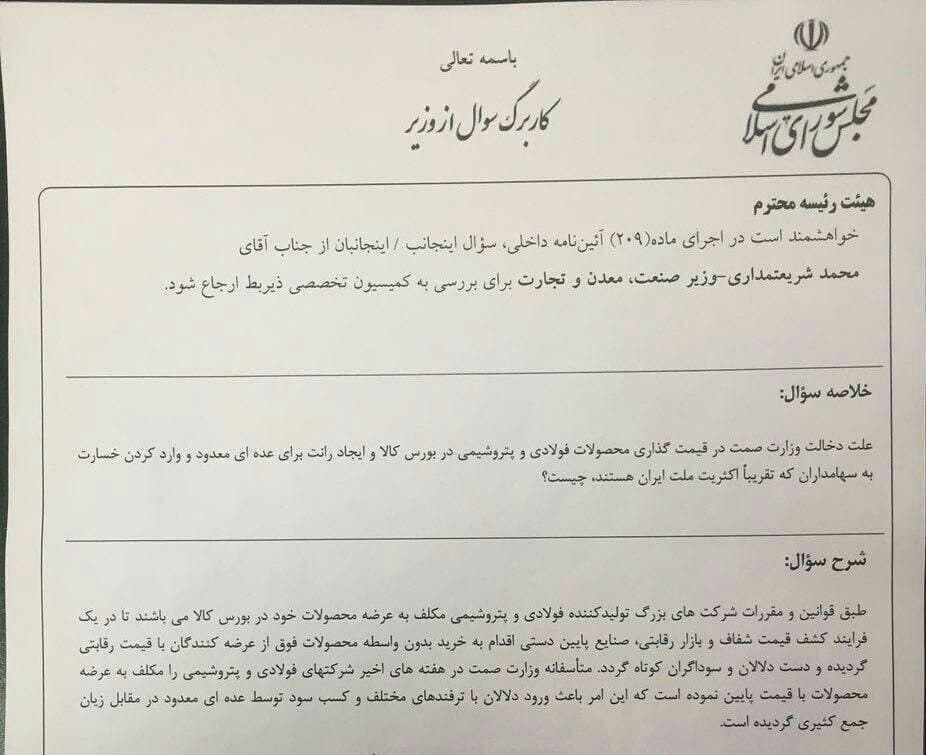 جمهوری اسلامی ایران
مجلس شورای اسلامی
باسمه تعالی
کاربرگ سوال از وزیر
هیئت رئیسه محترم
خواهشمند است در اجرای ماده(۲۰۹) آئین‌نامه داخلی، سؤال اینجانب / اینجانبان از جناب آقای
محمد شریعتمداری-وزیر صنعت، معدن و تجارت برای بررسی به کمیسیون تخصصی ذیربط ارجاع شود.
خلاصه سؤال:
علت دخالت وزارت صمت در قیمت گذاری محصولات فولادی و پتروشیمی در بورس کالا و ایجاد رانت برای عده ای معدود و وارد کردن خسارت
به سهامداران که تقریباً اکثریت ملت ایران هستند، چیست؟
شرح سؤال:
طبق قوانین و مقررات شرکت های بزرگ تولیدکننده فولادی و پتروشیمی مکلف به عرضه محصولات خود در بورس کالا می باشند تا در یک
فرایند کشف قیمت شفاف و بازار رقابتی، صنایع پایین دستی اقدام به خرید بدون واسطه محصولات فوق از عرضه کنندگان با قیمت رقابتی
گردیده و دست دلالان و سوداگران کوتاه گردد. متأسفانه وزارت صمت در هفته های اخیر شرکتهای فولادی و پتروشیمی را مکلف به عرضه
محصولات با قیمت پایین نموده است که این امر باعث ورود دلالان با ترفندهای مختلف و کسب سود توسط عده ای معدود در مقابل زیان
جمع کثیری گردیده است.